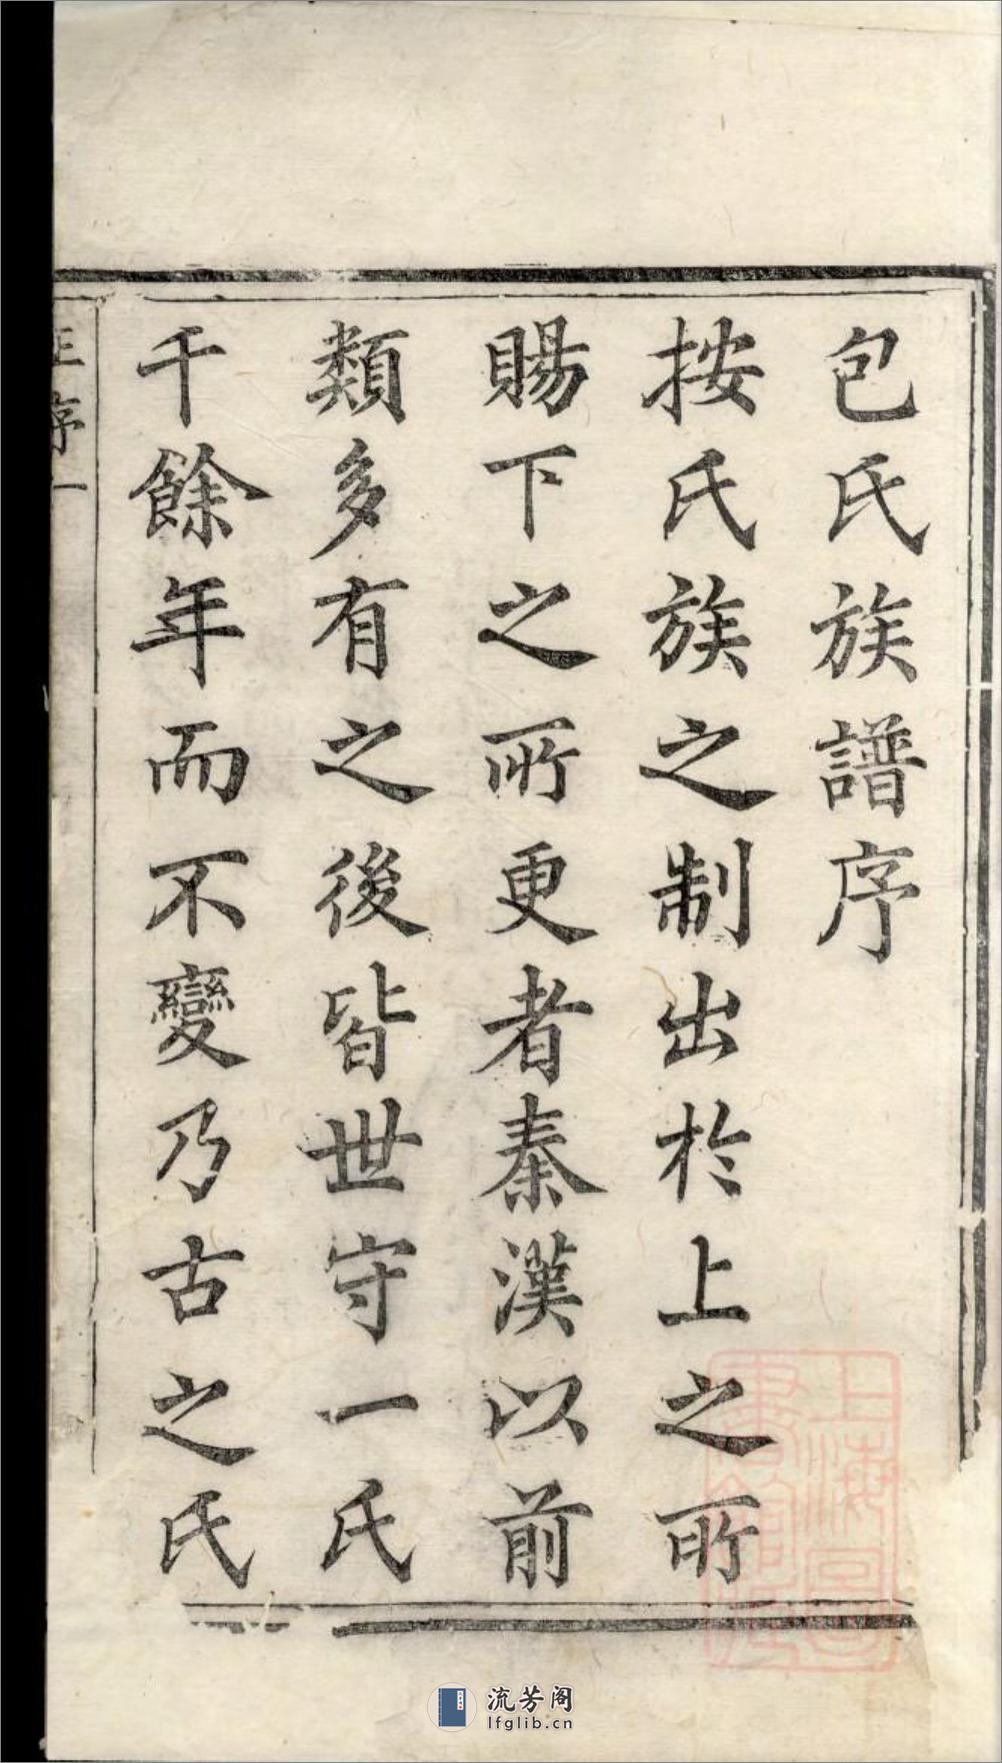 包氏族譜序
按氏族之制出於上之所
賜下之所更者秦漢以前
類多有之後皆世守一氏
千餘年而不變乃古之氏
序一
上海圖書館藏
流芳阁
lfglib.cn